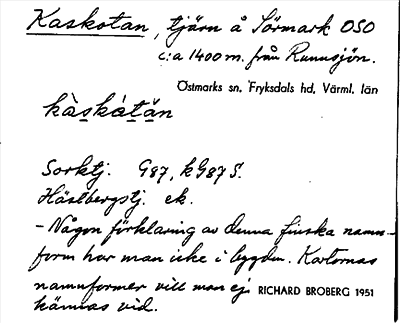 Kaskotan, tjärn å Sörmark OSO
c:a 1400 m. från Runnsjön.
Östmarks sn. Fryksdals hd. Värml. län
kàskátăn
Sorktj. G87, kG87 S.
Hästbergstj. ek.
- Någon förklaring av denna finska namn-
form har man icke i bygden. Kartornas
namnformer vill man ej RICHARD BROBERG 1951
kännas vid.